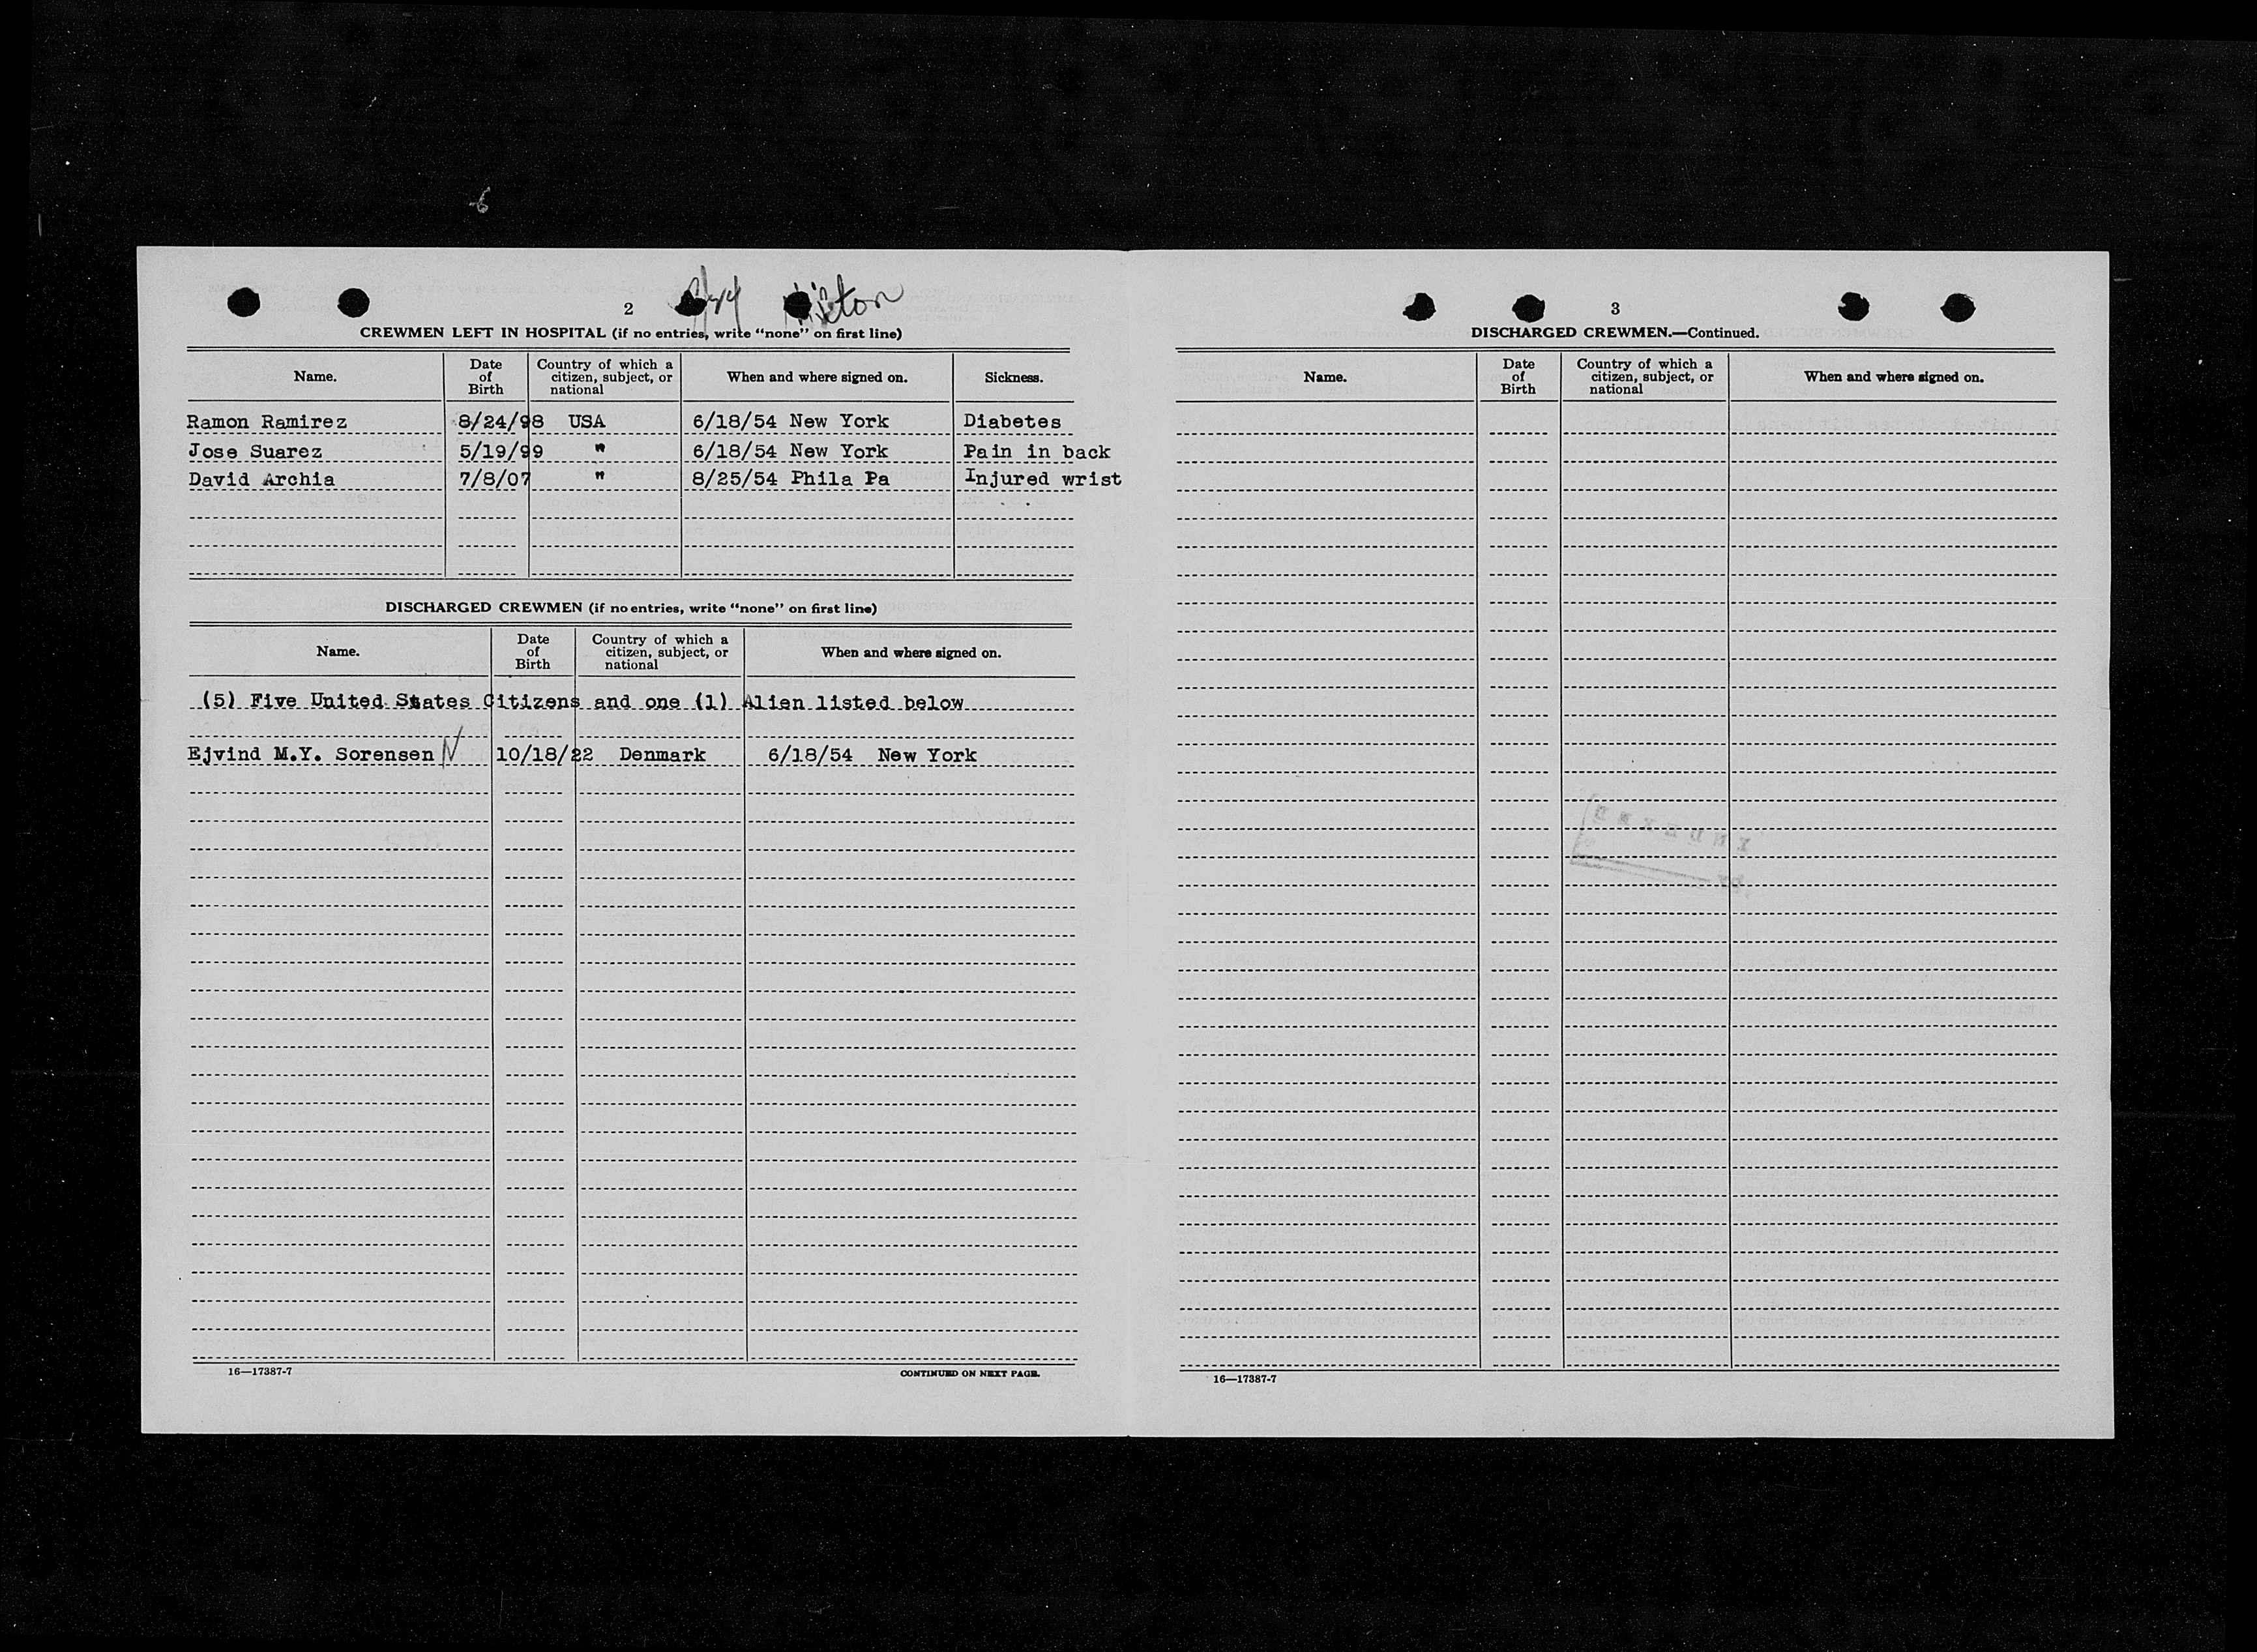 2
CREWMEN LEFT IN HOSPITAL (if no entries, write “none” on first line)
Name. Date of Birth Country of which a citizen, subject, or national When and where signed on. Sickness.
Ramon Ramirez 8/24/98 USA 6/18/54 New York Diabetes
Jose Suarez 5/19/99 " 6/18/54 New York Pain in back
David Archia 7/8/07 " 8/25/54 Phila Pa Injured wrist
DISCHARGED CREWMEN (if no entries, write “none” on first line)
Name. Date of Birth Country of which a citizen, subject, or national When and where signed on.
(5) Five United States Citizens and one (1) Alien listed below
Ejvind M.Y. Sorensen 10/18/22 Denmark 6/18/54 New York
16—17387-7 CONTINUED ON NEXT PAGE.
3
DISCHARGED CREWMEN.—Continued.
Name. Date of Birth Country of which a citizen, subject, or national When and where signed on.
16—17387-7